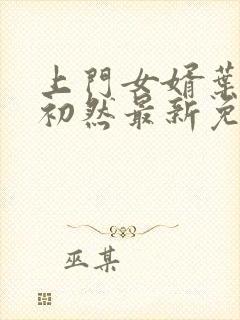 上門女婿葉
初然最新免
巫某